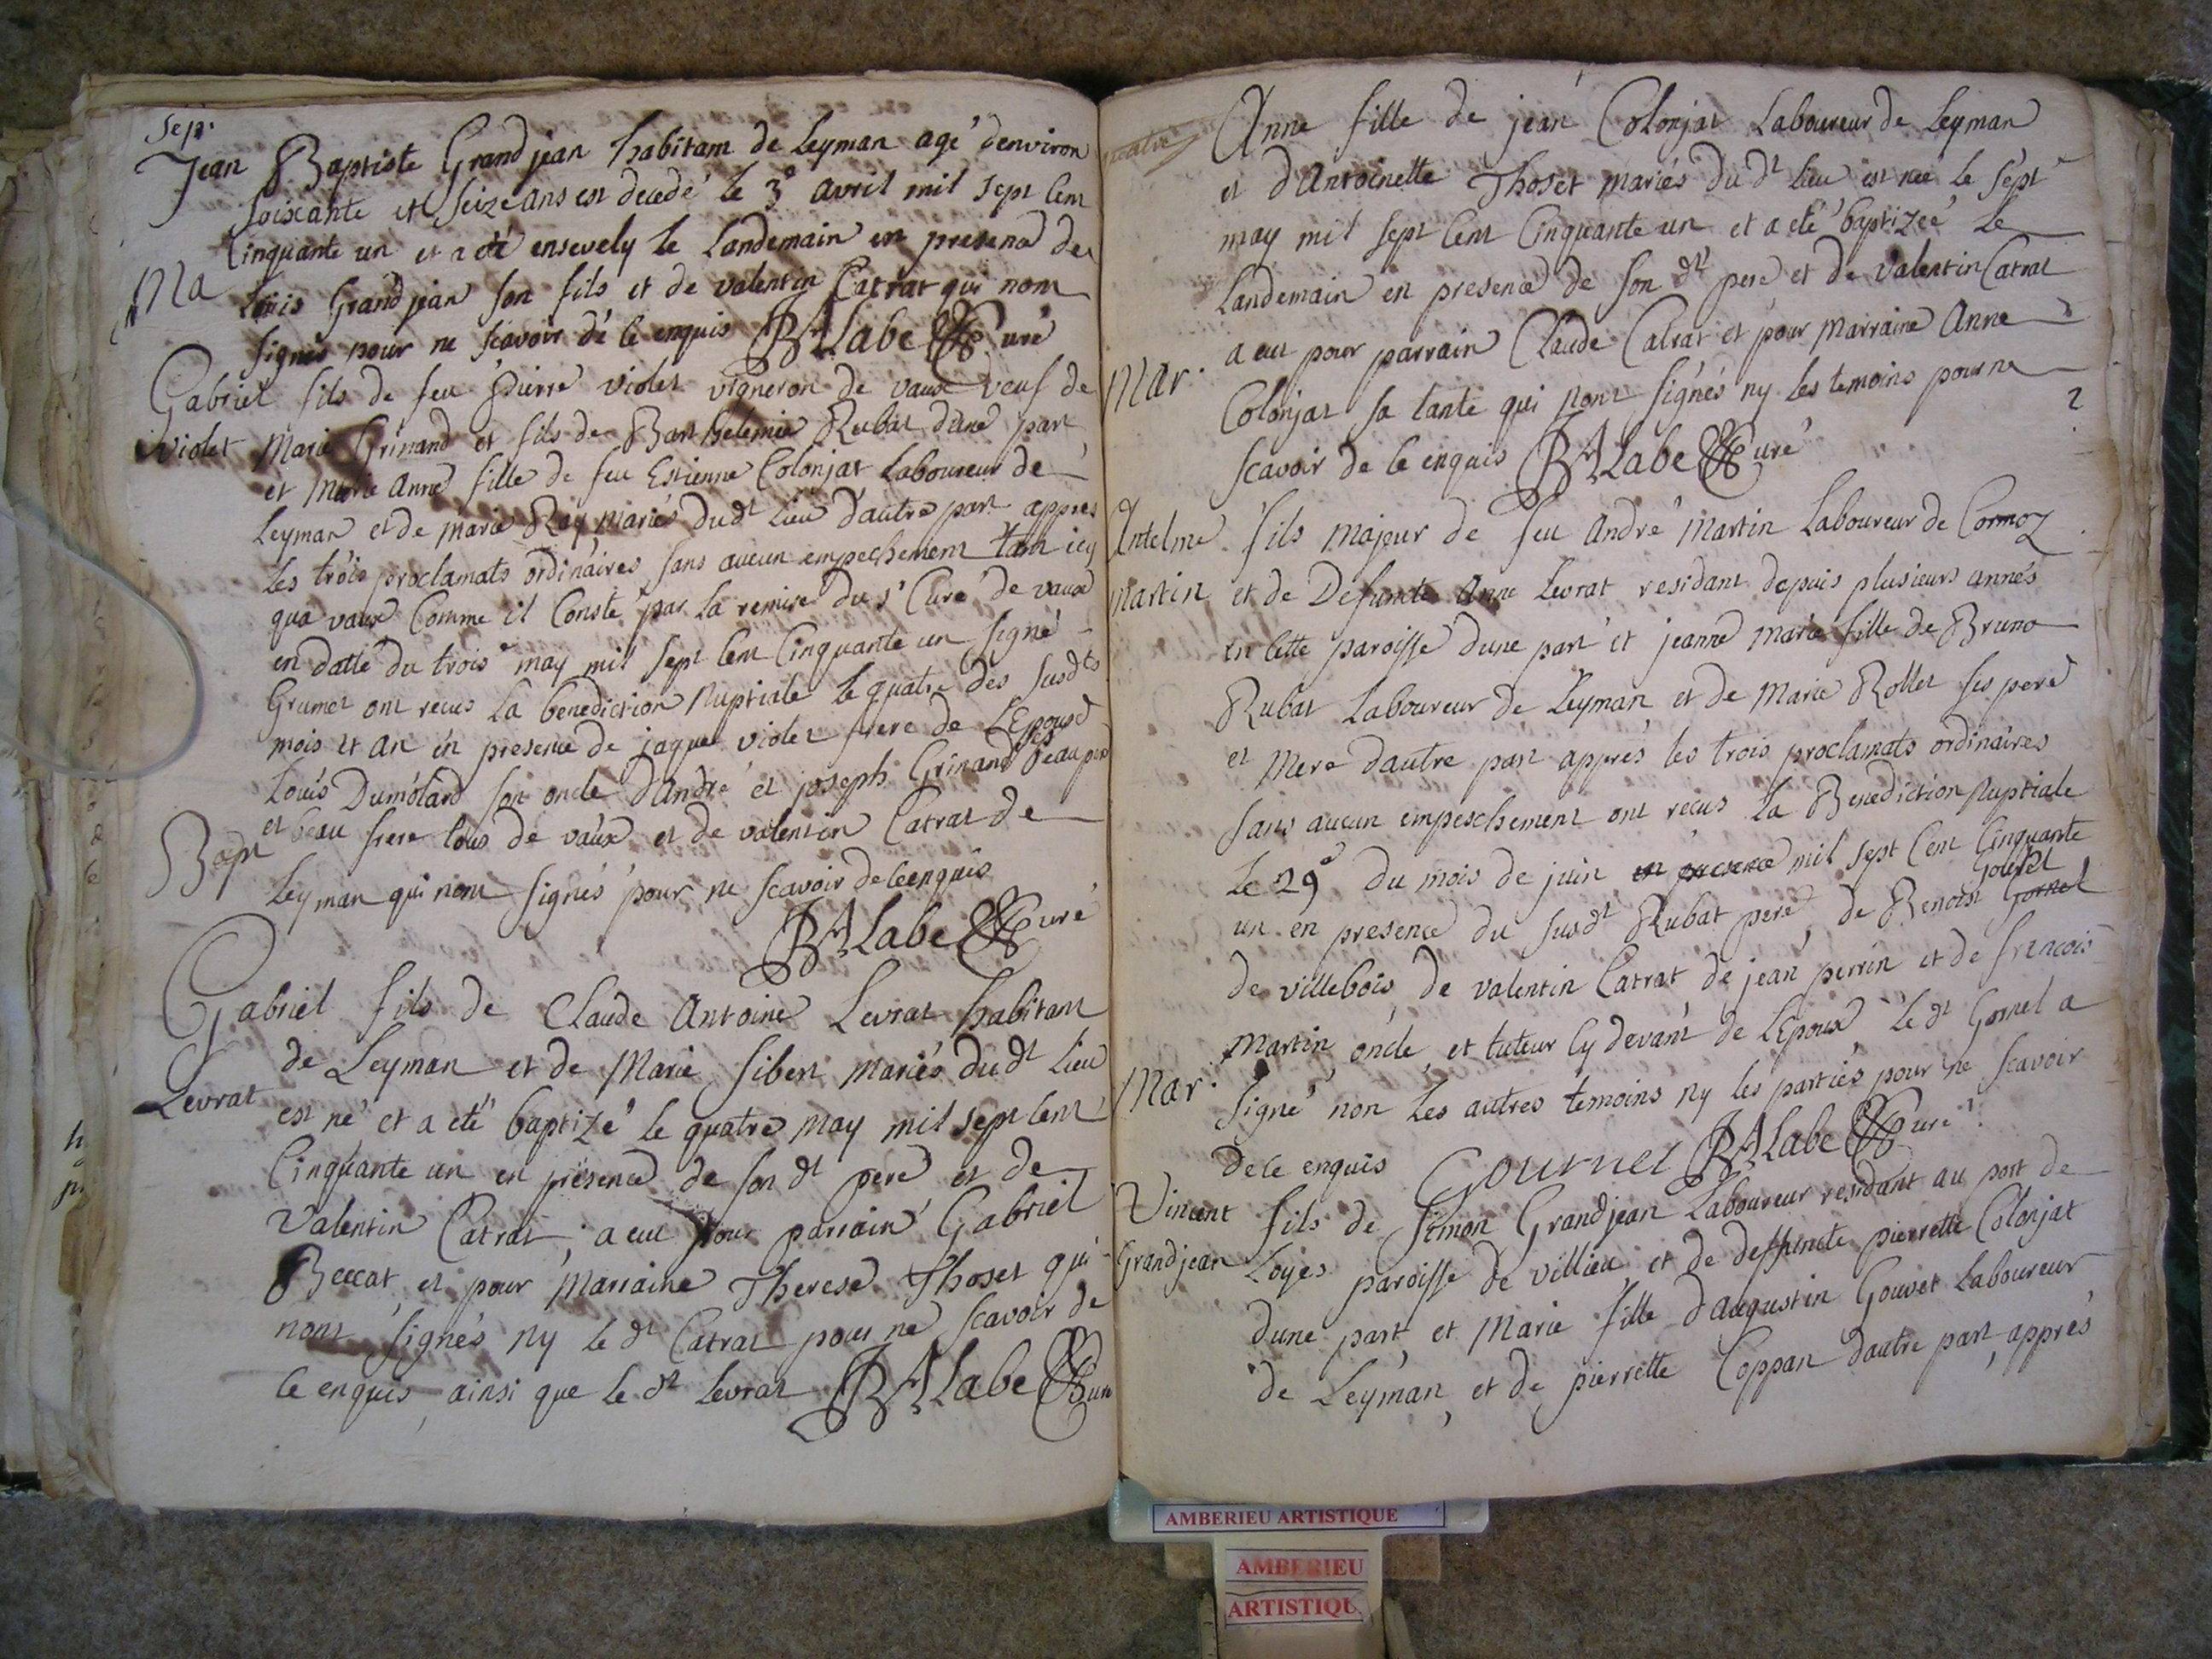 Sep.
Jean Baptiste Grand jean habitant de Leyman agé denviron
soixante et seize ans est decedé le 3e avril mil sept cent
Cinquante un et a été ensevely le Landemain en presence de
Ma
Loüis Grand jean son fils et de valentin Catrat qui nont
signés pour ne scavoir de ce enquis BALabe Curé
Gabriel fils de feu Pierre violet vigneron de vaux veuf de
Violet Marie Grinand et fils de Barthelemie Rubat dune part
et Marie Anne fille de feu Estienne Colonjat Laboureur de
Leyman et de Marie Ray mariés dudt Lieu dautre part appres
Les trois proclamats ordinaires sans aucun empechement tant icy
qua vaux Comme il Conste par la remise du sr Curé de vaux
en datte du trois may mil sept cent Cinquante un signé
Grumet ont recus La benediction Nuptiale le quatre des susdts
mois et an en presence de jaque violet frere de LEpoux
Loüis Dumolard son oncle dAndré et joseph Grinand ses beau pere
et beau frere tous de vaux et de valentin Catrat de
Bapt
Leyman qui nont signés pour ne scavoir de ce enquis
BALabe Curé
Gabriel fils de Claude Antoine Levrat habitant
de Leyman et de Marie Sibert mariés dudt Lieu
Levrat
est né et a été baptizé le quatre may mil sept cent
Cinquante un en presence de son dt pere et de
Valentin Catrat, a eut pour parrain Gabriel
Beccat et pour Marraine Therese Thoset qui
nont signés ny le dt Catrat pour ne scavoir de
ce enquis, ainsi que le dt Levrat BALabe Cure
Anne fille de jean Colonjat Laboureur de Leyman
et dAntoinette Thoset mariés du dt lieu est née le sept
may mil sept cent Cinquante un et a été baptizée Le
Landemain en presence de son dt pere et de valentin Catrat
a eut pour parrain Claude Catrat et pour Marraine Anne
Mar.
Colonjat sa tante qui nont signés ny les temoins pour ne
scavoir de ce enquis BALabe Curé
2
Antelme fils majeur de feu André Martin Laboureur de Cormoz
Martin et de Defuncte Anne Levrat residant depuis plusieurs annés
en cette paroisse dune part et jeanne marie fille de Bruno
Rubat Laboureur de Leyman et de Marie Rollet ses pere
et Mere dautre part apprés les trois proclamats ordinaires
sans aucun empeschement ont recus la Benediction Nuptiale
Le 29e du mois de juin en presence mil sept Cent Cinquante
un en presence du susdt Rubat pere de Benoist Gornel Gournel
de villebois de valentin Catrat de jean perrin et de francois
Martin, oncle, et tuteur cy devant de LEpoux le dt Gornel a
Mar.
signé non les autres temoins ny les parties pour ne scavoir
de ce enquis Gournel BALabe Curé
Vincent fils de Simon Grandjean Laboureur residant au port de
Grandjean Loyes paroisse de villieu et de deffuncte pierrette Colonjat
dune part, et Marie fille dAugustin Gouvet Laboureur
de Leyman, et de pierrette Coppan dautre part, apprés
AMBERIEU ARTISTIQUE
AMBERIEU
ARTISTIQU